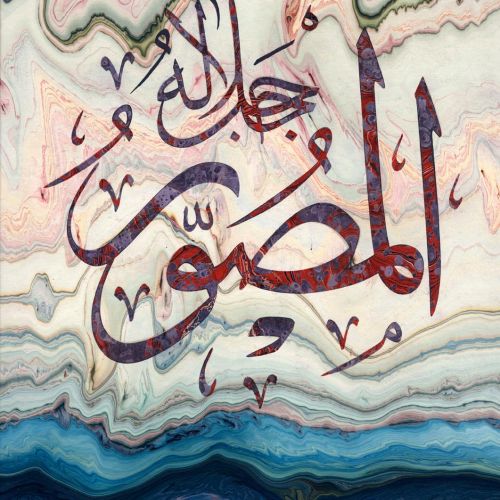 المصوّر
جلاله